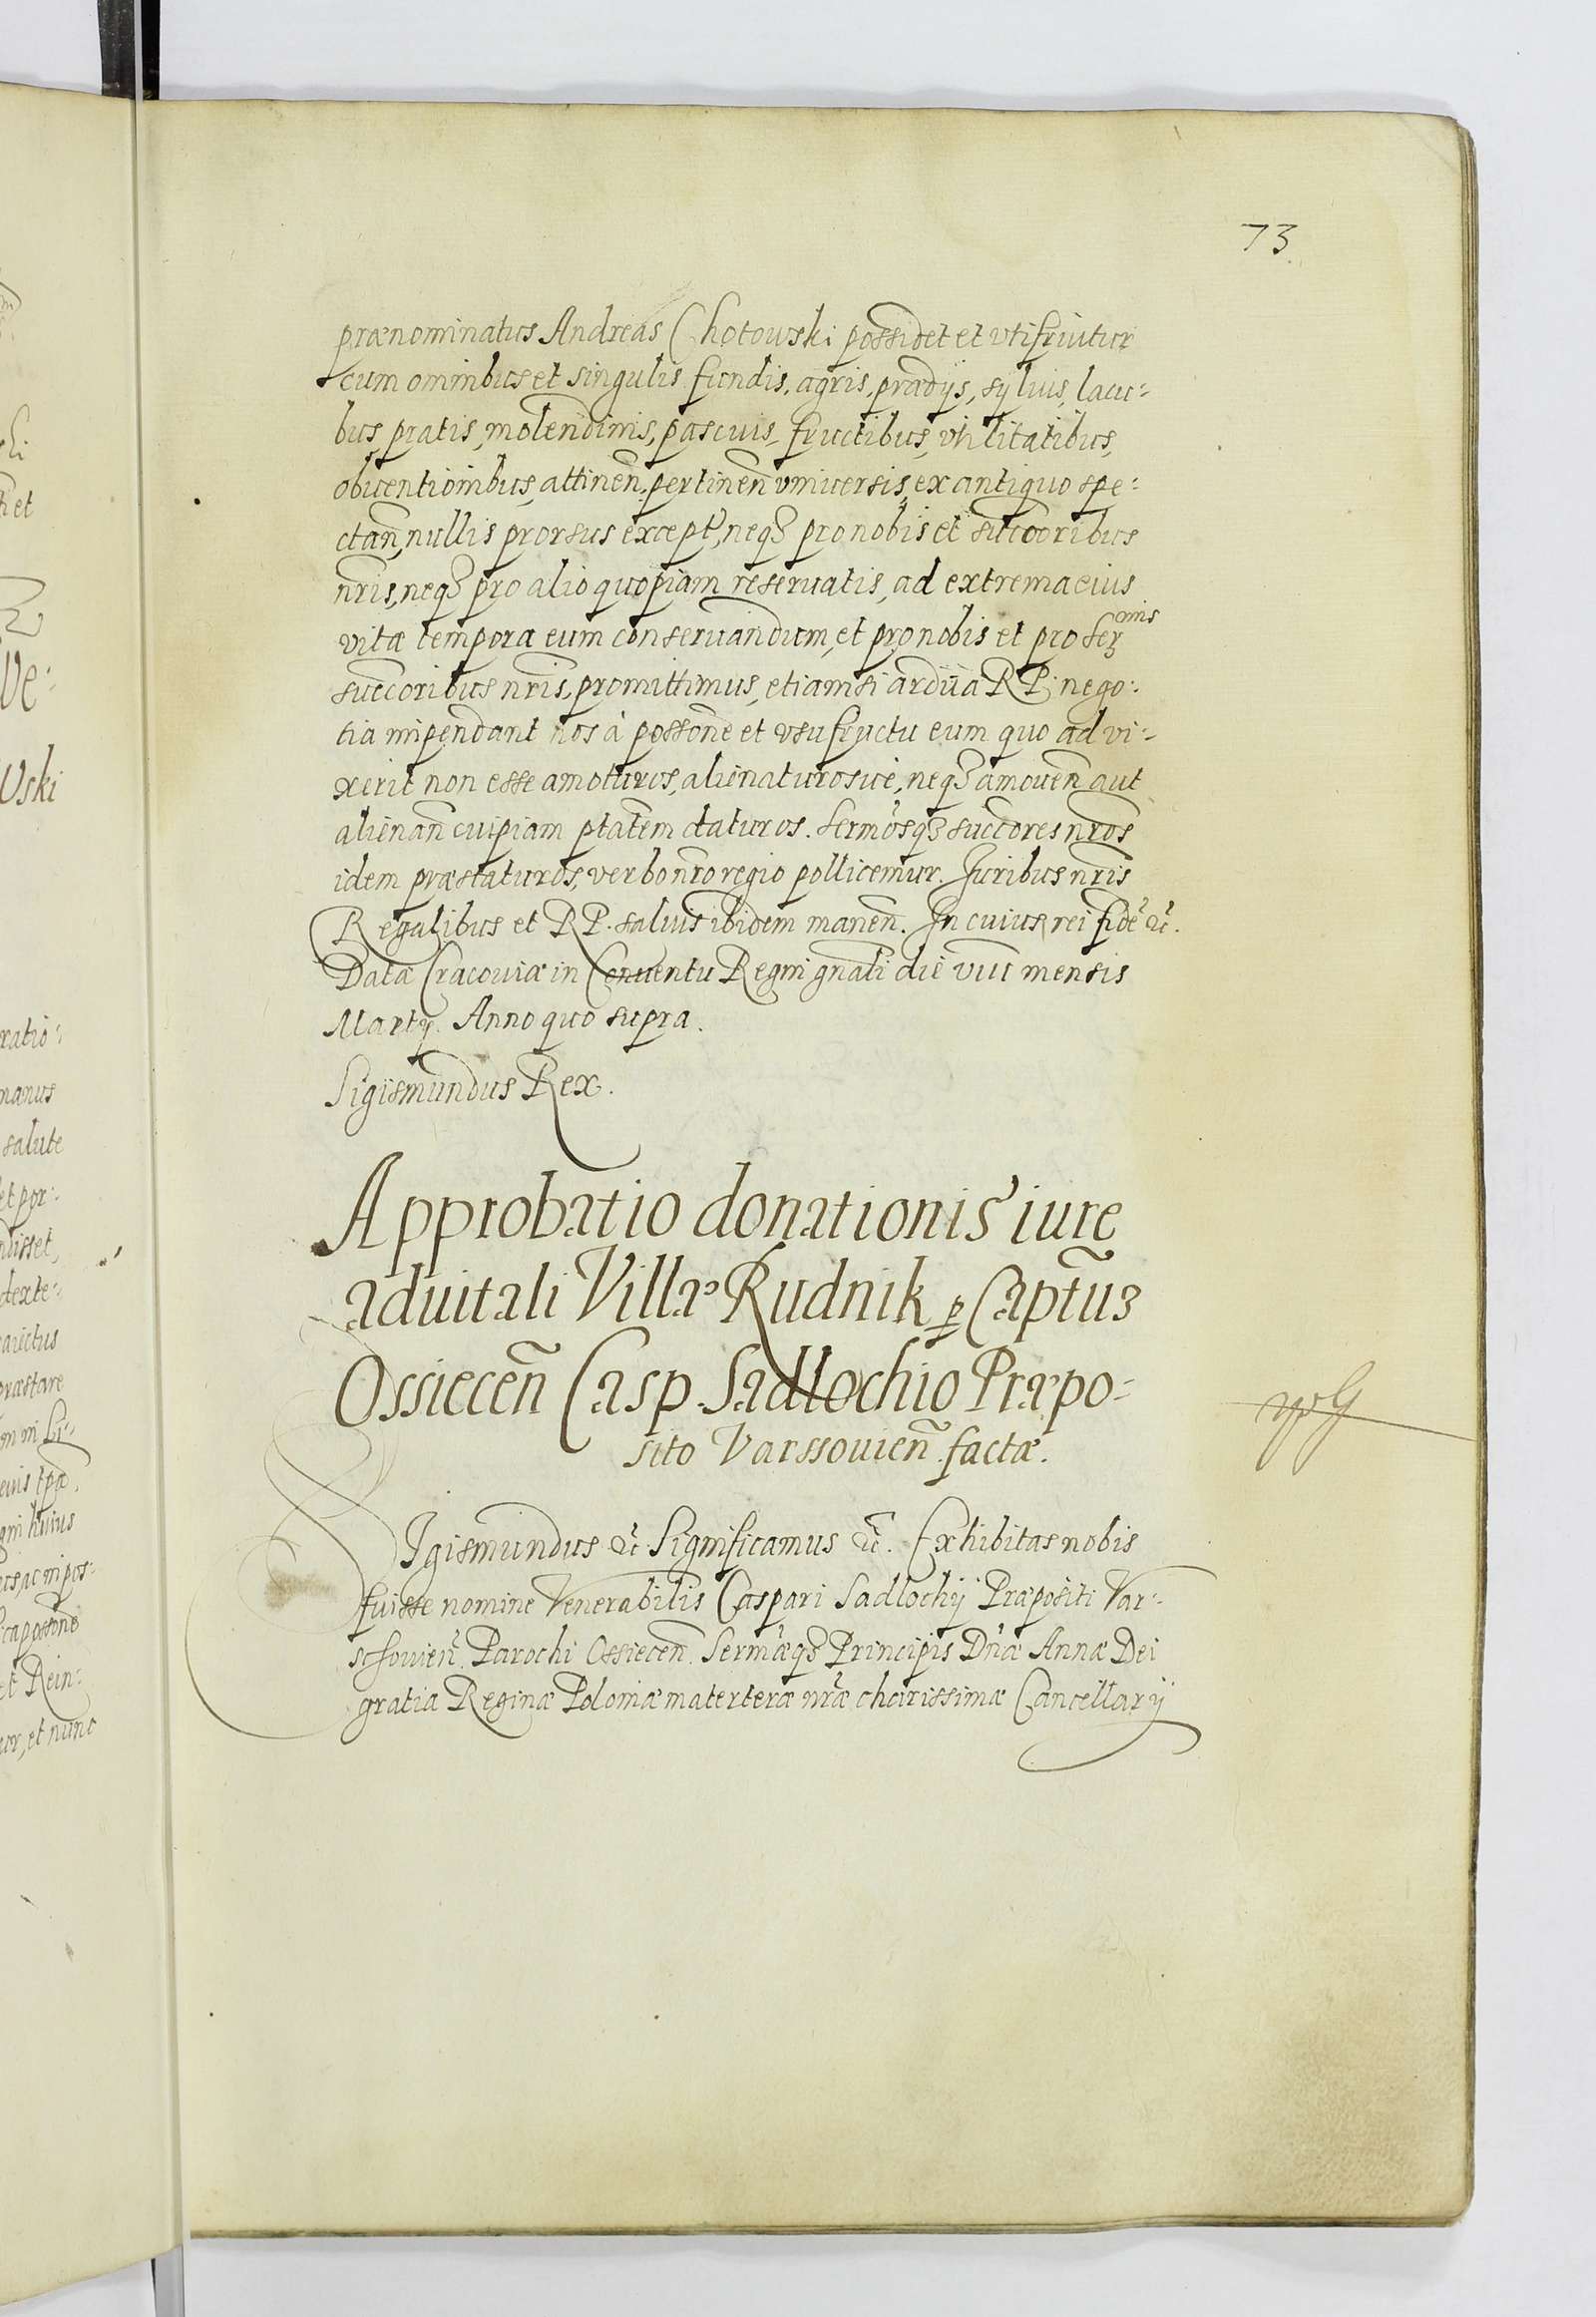 73.
prænominatus Andreas Chotowski possidet et vtifruitur
cum omnibus et singulis fundis, agris, prædijs, syluis, lacu-
bus, pratis, molendinis, pascuis, fructibus, vtilitatibus,
obuentionibus, attinen̄, pertinen̄ vniuersis, ex antiquo spe-
ctan̄, nullis prorsus except', neqꝫ pro nobis et succoribus
nr̄is, neqꝫ pro alio quopiam reseruatis, ad extrema eius
vitæ tempora eum conseruandum, et pro nobis et pro Ser
succoribus nr̄is, promittimus, etiamsi ardua RP. nego-
tia impendant nos à possōne et vsufructu eum quo ad vi-
xerit non esse amoturos, alienaturosue, neqꝫ amouen̄ aut
alienan̄ cuipiam ptatem daturos. Sermosqꝫ succores nr̄os
idem præstaturos, verbo nr̄o regio pollicemur. Juribus nr̄is
Regalibus et RP. saluis ibidem manen̄. In cuius rei fidē &c.
Datæ Cracouiæ in Conuentu Regni gn̄ali die VIII mensis
Martij. Anno quo supra.
Sigismundus Rex.
Approbatio donationis iure
aduitali Villæ Rudnik ꝑ Captus
Ossiecen̄ Casp. Sadlochio Præpo-
sito Varssouien̄. factæ.
SIgismundus &c. Significamus &c. Exhibitas nobis
fuisse nomine Venerabilis Caspari Sadlochij Præpositi Var-
schouien̄. Parochi Ossiecen̄. Sermæqꝫ Principis Dn̄æ Annæ Dei
gratia Reginæ Poloniæ materteræ nr̄æ charissimæ Cancellarij